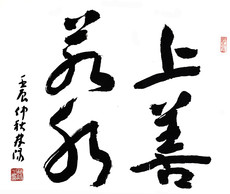 上善
若水
壬辰仲秋